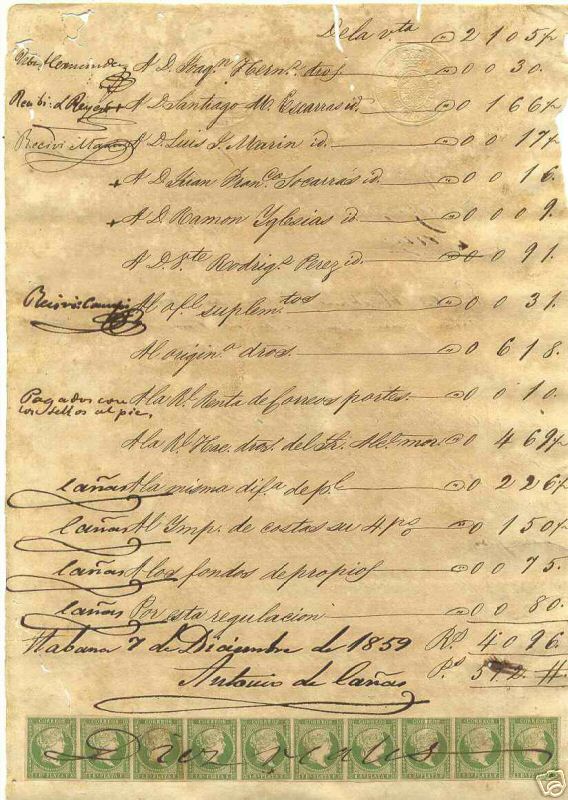 De la vta 2105½
A D. Joaqn Hernz dros 0030.
Recibi: L Reyes + A D. Santiago M. Escarras id. 0166½
Recivi Marin A D. Luis J. Marin id. 0017½
+ A D. Juan Franco Socarras id. 0016.
+ A D. Ramon Yglesias id 0009.
A D. Vte Rodrigz Perez id. 0091.
Recivi: Al ofl suplemtos 0031.
Al origino dros. 0618.
Pagados con los sellos al pie, A la Rl Renta de Correos portes. 0010.
A la Rl Hac. dros. del Sr. Alce mor. 0469½
Cañas A la misma difa de pl 0226½
Cañas Al Ymp. de costas su 4 po 0150½
Cañas A los fondos de propios 0075.
Cañas Por esta regulacion 0080.
Habana 7 de Diciembre de 1859 Rs. 4096.
Antonio de Cañas Ps. 512.
CORREOS CORREOS CORREOS CORREOS CORREOS CORREOS CORREOS CORREOS CORREOS CORREOS
Diez reales